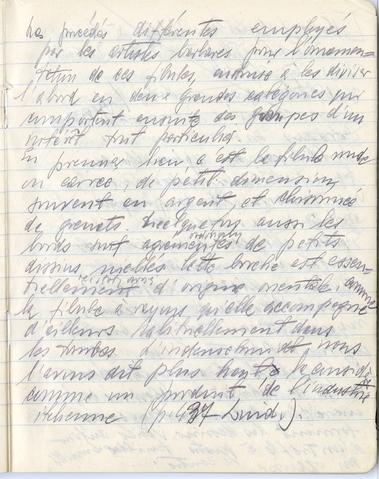 Les procédés différents employés
par les artistes barbares pour l'ornemen-
tation de ces fibules, à les diviser
d'abord en deux grandes catégories qui
comportent ensuite des groupes d'un
intérêt tout particulier.
En premier lieu c'est la fibule ronde
ou carrée, de petite dimension,
souvent en argent et cloisonnée
de grenats. Quelquefois aussi les
bords sont agrémentés de petits
dessins niellés. Cette broche est essen-
tiellement d'origine orientale comme
la fibule à rayons qu'elle accompagne
d'ailleurs habituellement dans
les tombes nous
l'avons dit plus haut
comme un produit de l'industrie
(p. 437 Lund.).